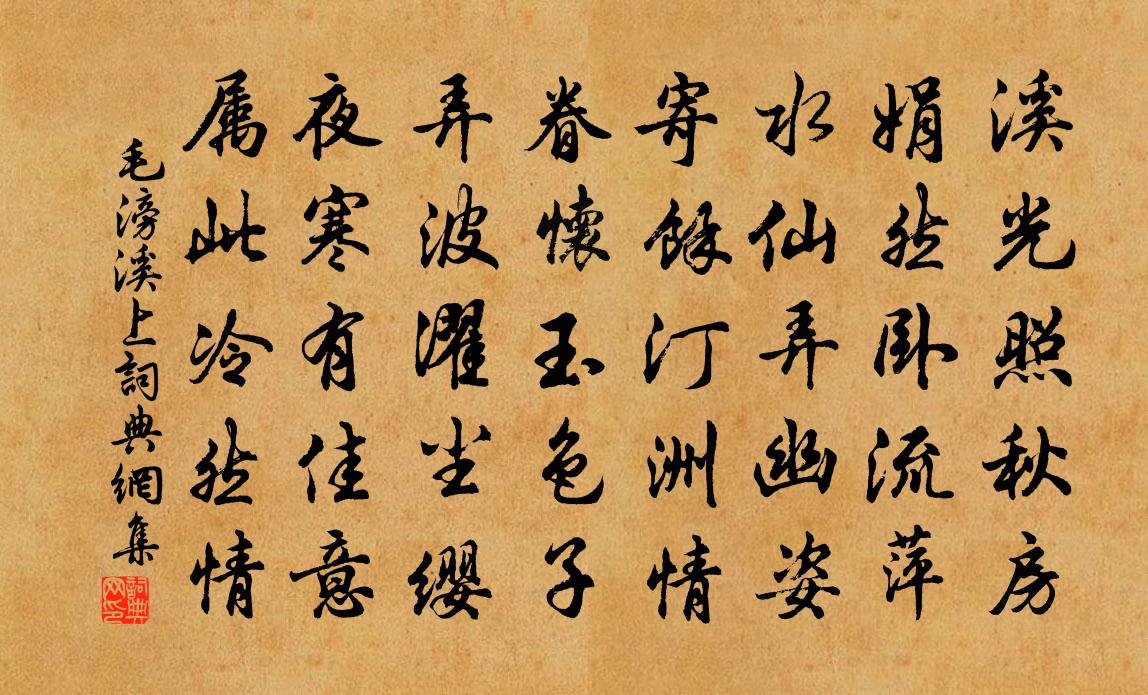 溪光照秋房
娟然卧流萍
水仙弄幽姿
寄馀汀洲情
眷懷玉色子
弄波濯尘缨
夜寒有佳意
属此冷然情
毛滂溪上詞典網集
詞典网印